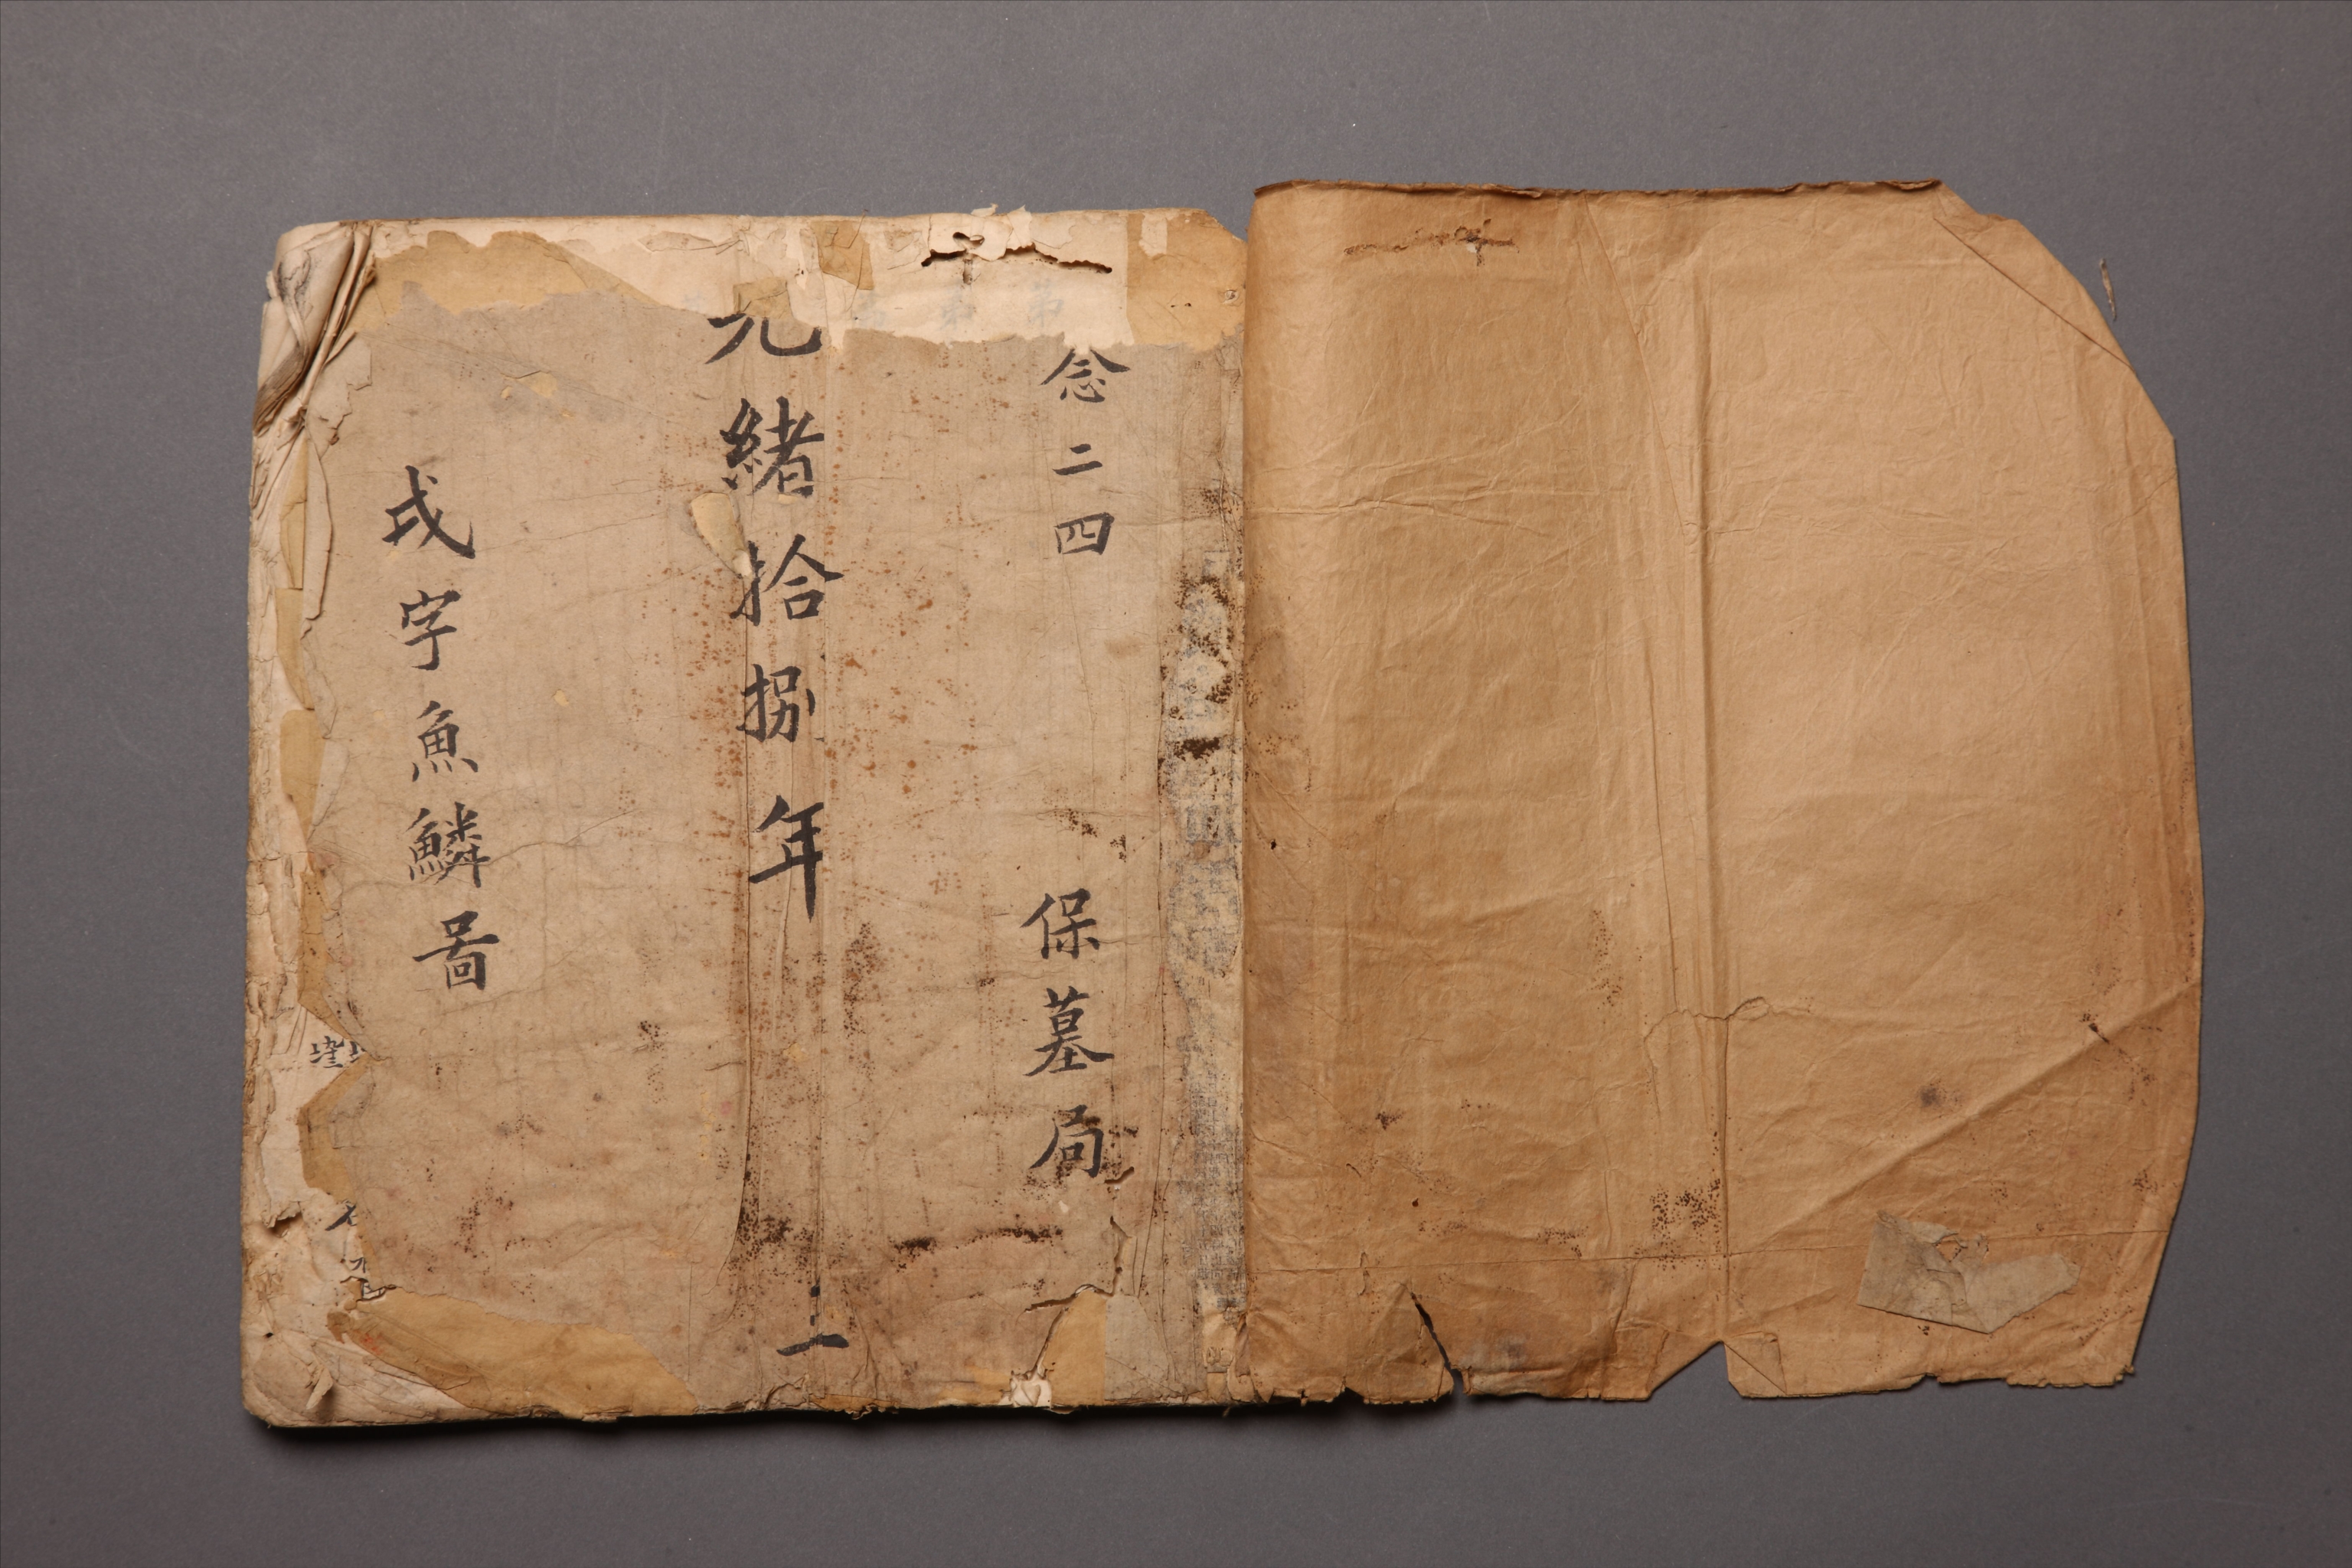 念二四 保墓局
光緒拾捌年
字魚鱗啚